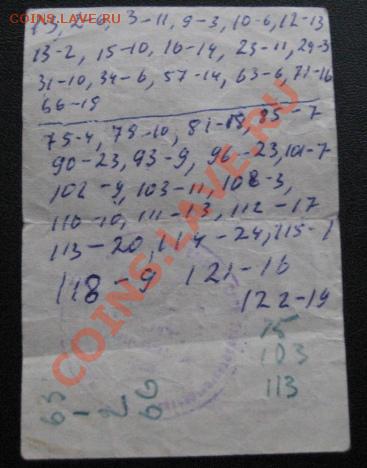 COINS.LAVE.RU
3-11, 9-3, 10-6, 12-13
13-2, 15-10, 16-14, 23-11, 24-3
31-10, 34-6, 57-14, 63-6, 71-16
66-19
75-4, 79-10, 85-7
90-23, 93-9, 96-23, 101-7
102-9, 103-11, 108-3,
110-10, 111-13, 112-17
113-20, 114-24, 115-1
118-9 121-16
122-19
75
103
113
63
COINS.LAVE.RU